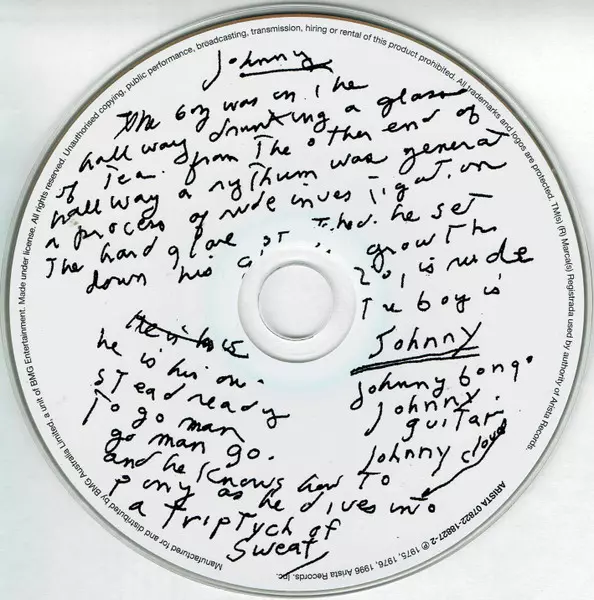 Johnny
The boy was in the
hallway drinking a glass
of Tea. from The other end of
hallway a rythum was generat
a process of rude investigation
The hard glare he set
down his growth
is rude
The boy is
Johnny
he is his
he is his own
stead ready
To go man
go man go.
and he knows how To
pony as he dives into
a Triptych of
sweat
Johnny bongo
Johnny
guitar
Johnny clown
Manufactured for and distributed by BMG Australia Limited, a unit of BMG Entertainment. Made under license. All rights reserved. Unauthorised copying, public performance, broadcasting, transmission, hiring or rental of this product prohibited. All trademarks and logos are protected. TM(s) (R) Marca(s) Registrada used by authority of Arista Records.
ARISTA 07822-18827-2 ℗ 1975, 1976, 1996 Arista Records, Inc.